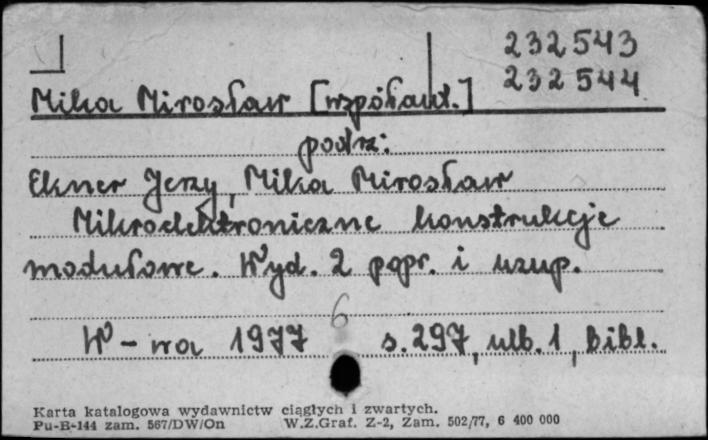 232543
232544
Mika Mirosław [współaut.]
podrz:
Ekner Jerzy, Mika Mirosław
Mikroelektroniczne konstrukcje
modułowe. Wyd. 2 popr. i uzup.
6
W-wa 1977 s. 297, ulb. 1, bibl.
Karta katalogowa wydawnictw ciągłych i zwartych.
Pu-B-144 zam. 567/DW/On W.Z.Graf. Z-2, Zam. 502/77, 6 400 000